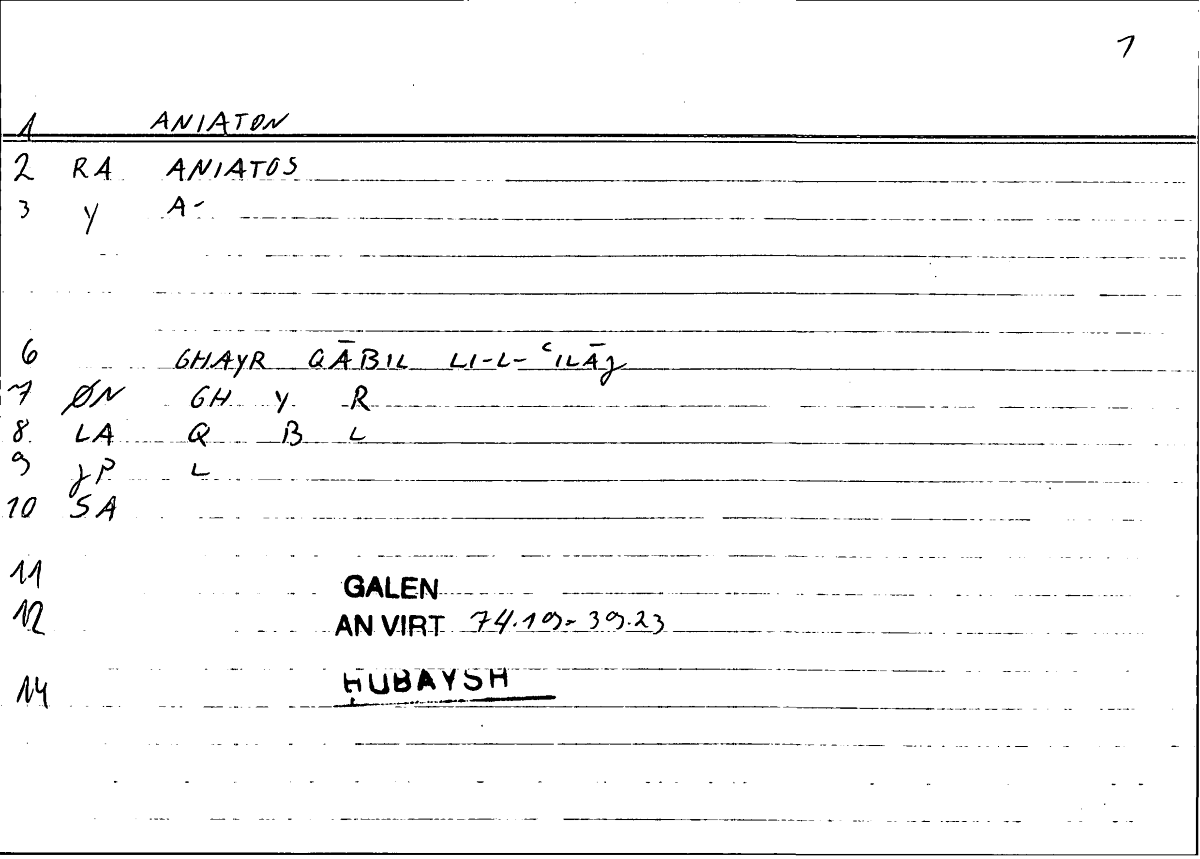 1
1 ANIATON
2 RA ANIATOS
3 Y A-
6 GHAYR QĀBIL LI-L-ʿILĀJ
7 ØN GH Y R
8 LA Q B L
9 JP L
10 SA
11 GALEN
12 AN VIRT 74.19-39.23
14 ḤUBAYSH